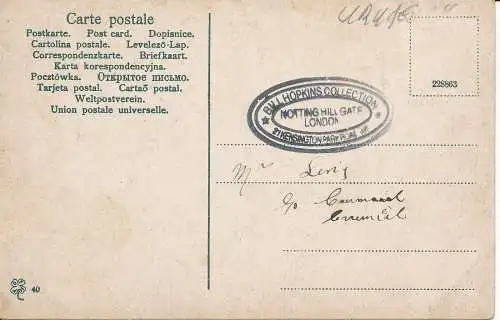 Carte postale
Postkarte. Post card. Dopisnice.
Cartolina postale. Levelező-Lap.
Correspondenzkarte. Briefkaart.
Karta korespondencyjna.
Pocztówka. Открытое письмо.
Tarjeta postal. Cartaõ postal.
Weltpostverein.
Union postale universelle.
228863
★ BILL HOPKINS COLLECTION ★
NOTTING HILL GATE
LONDON
KENSINGTON PARK ROAD
Mr
c/o
40